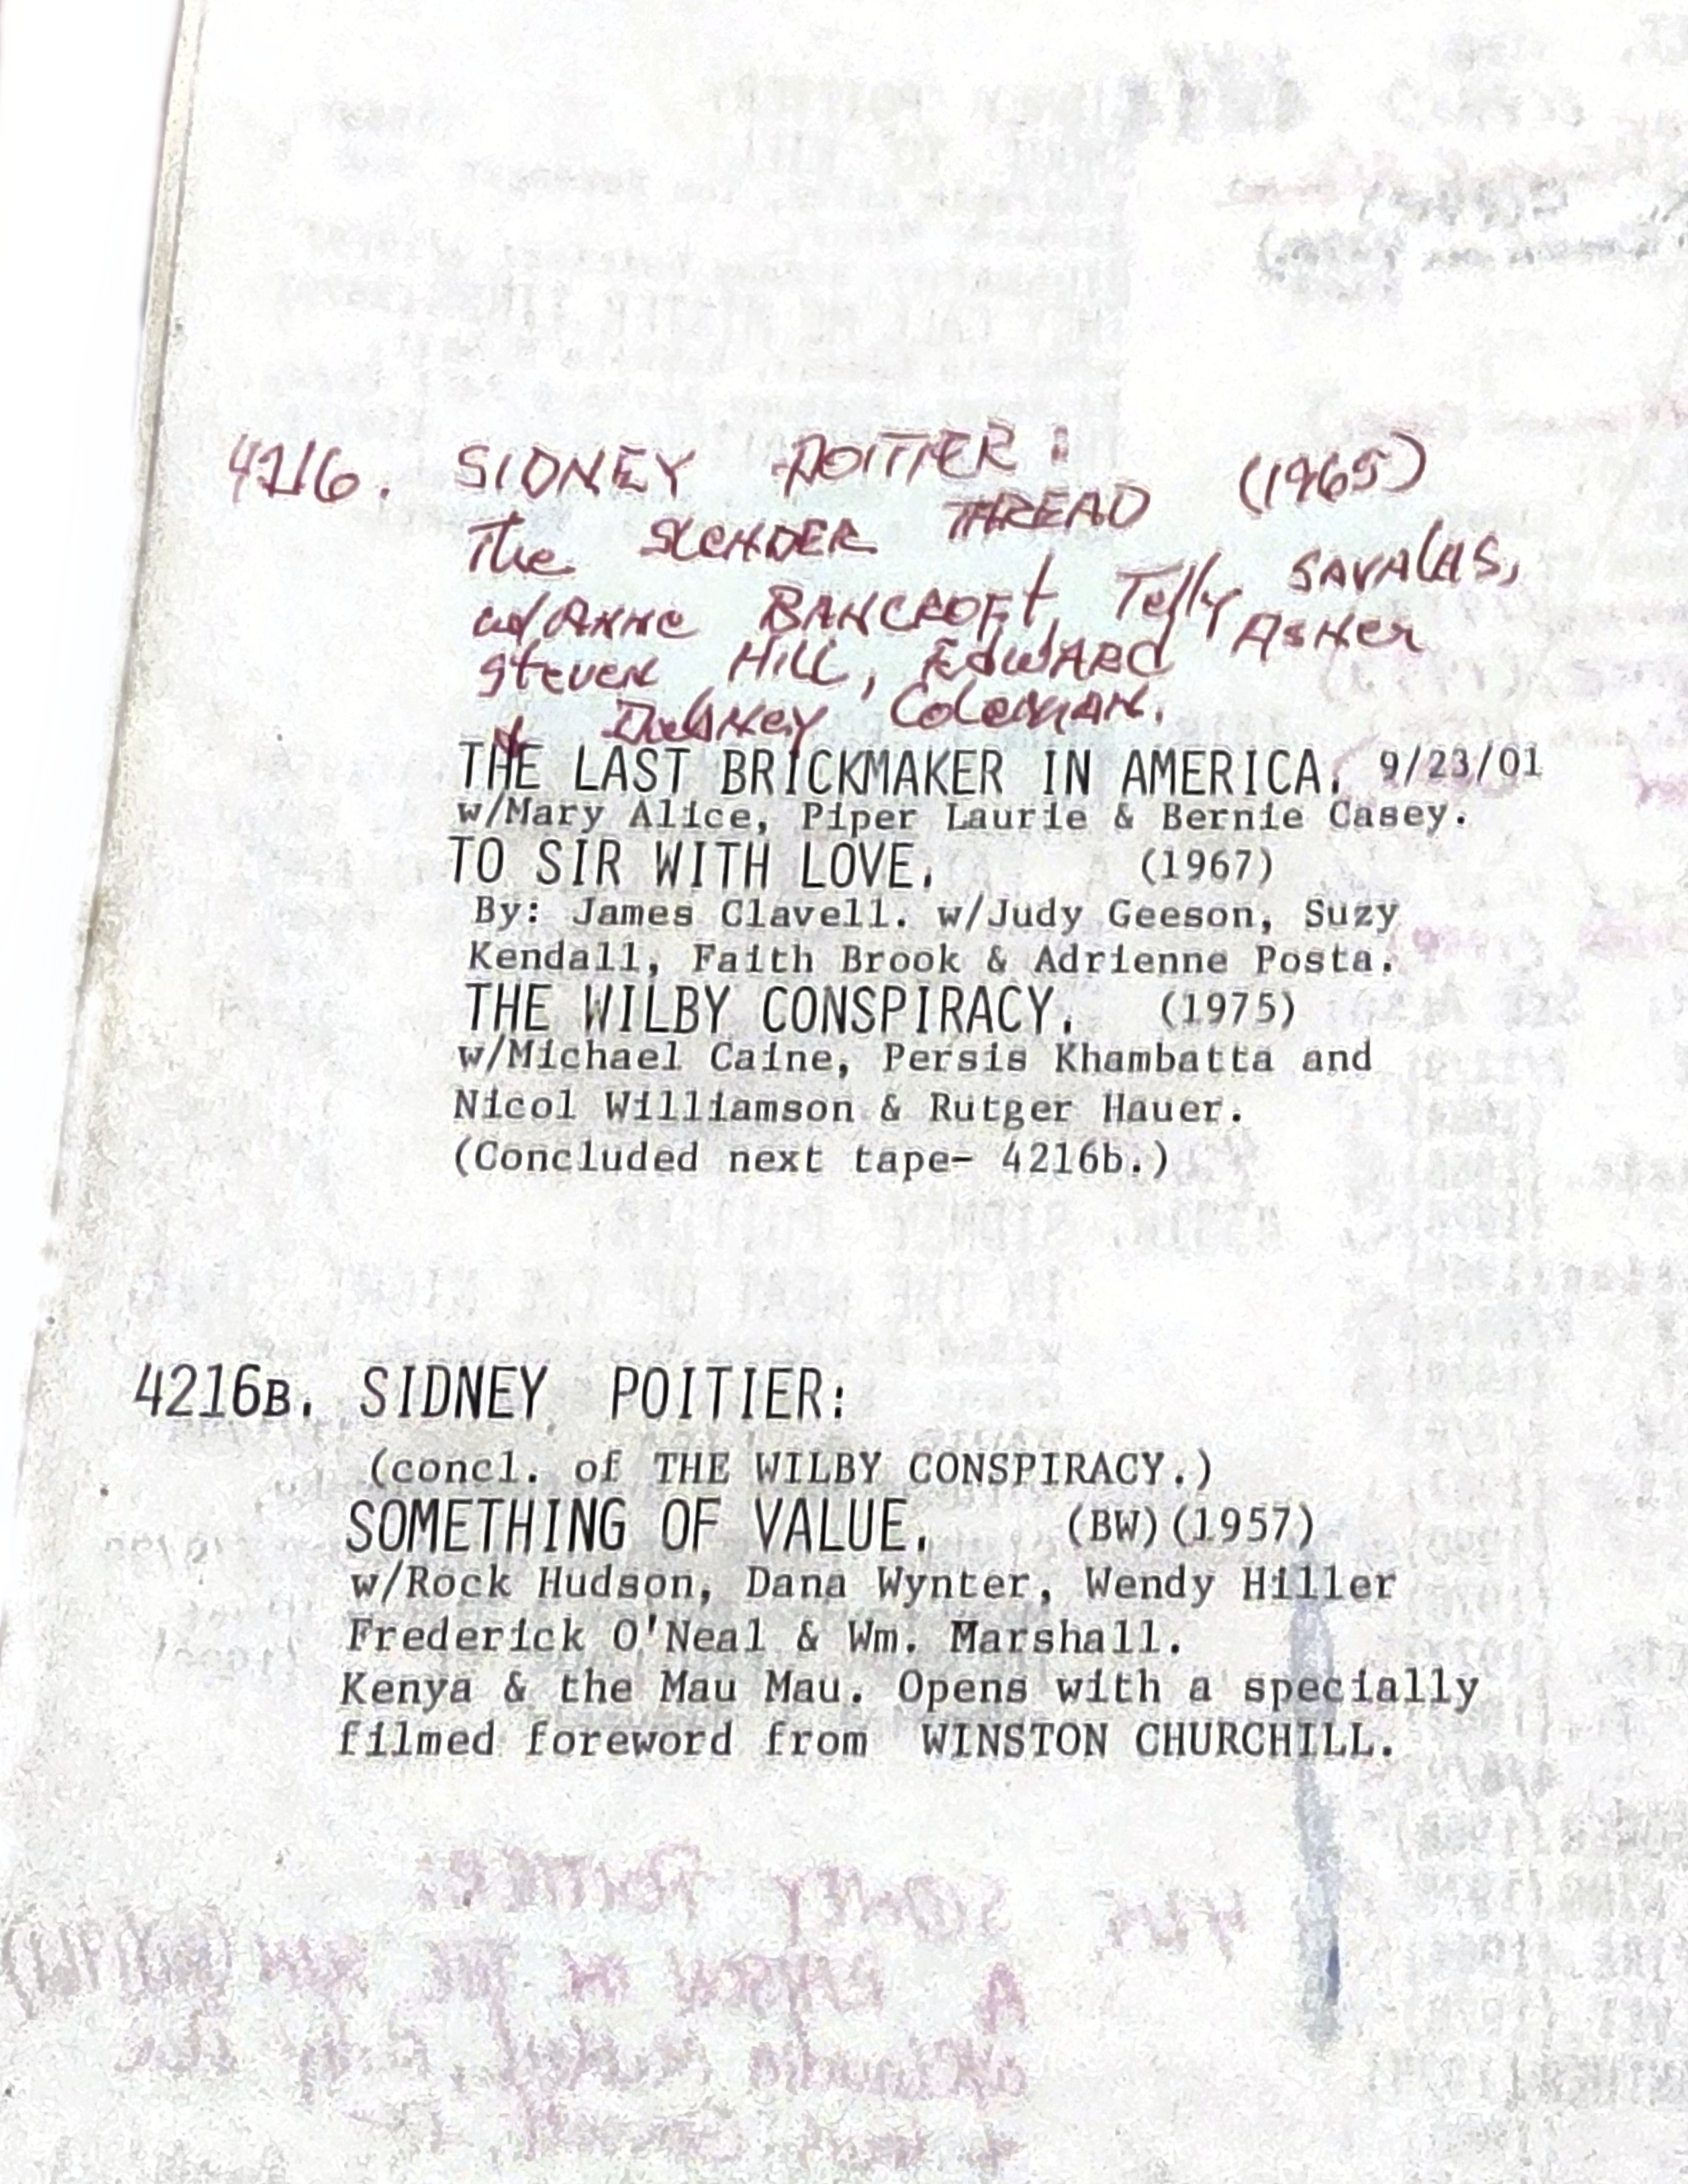 4216. SIDNEY POITIER:
The SLENDER THREAD (1965)
w/Anne BANCROFT, Telly SAVALAS,
Steven Hill, EDWARD Asner
& DABNey Coleman.
THE LAST BRICKMAKER IN AMERICA. 9/23/01
w/Mary Alice, Piper Laurie & Bernie Casey.
TO SIR WITH LOVE. (1967)
By: James Clavell. w/Judy Geeson, Suzy
Kendall, Faith Brook & Adrienne Posta.
THE WILBY CONSPIRACY. (1975)
w/Michael Caine, Persis Khambatta and
Nicol Williamson & Rutger Hauer.
(Concluded next tape- 4216b.)
4216B. SIDNEY POITIER:
(concl. of THE WILBY CONSPIRACY.)
SOMETHING OF VALUE. (BW)(1957)
w/Rock Hudson, Dana Wynter, Wendy Hiller
Frederick O'Neal & Wm. Marshall.
Kenya & the Mau Mau. Opens with a specially
filmed foreword from WINSTON CHURCHILL.